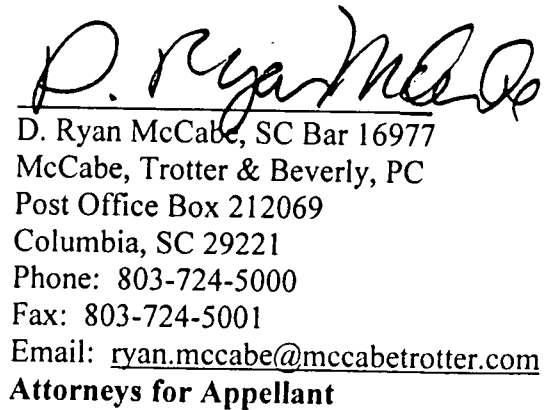 D. Ryan McCabe
D. Ryan McCabe, SC Bar 16977
McCabe, Trotter & Beverly, PC
Post Office Box 212069
Columbia, SC 29221
Phone: 803-724-5000
Fax: 803-724-5001
Email: ryan.mccabe@mccabetrotter.com
Attorneys for Appellant